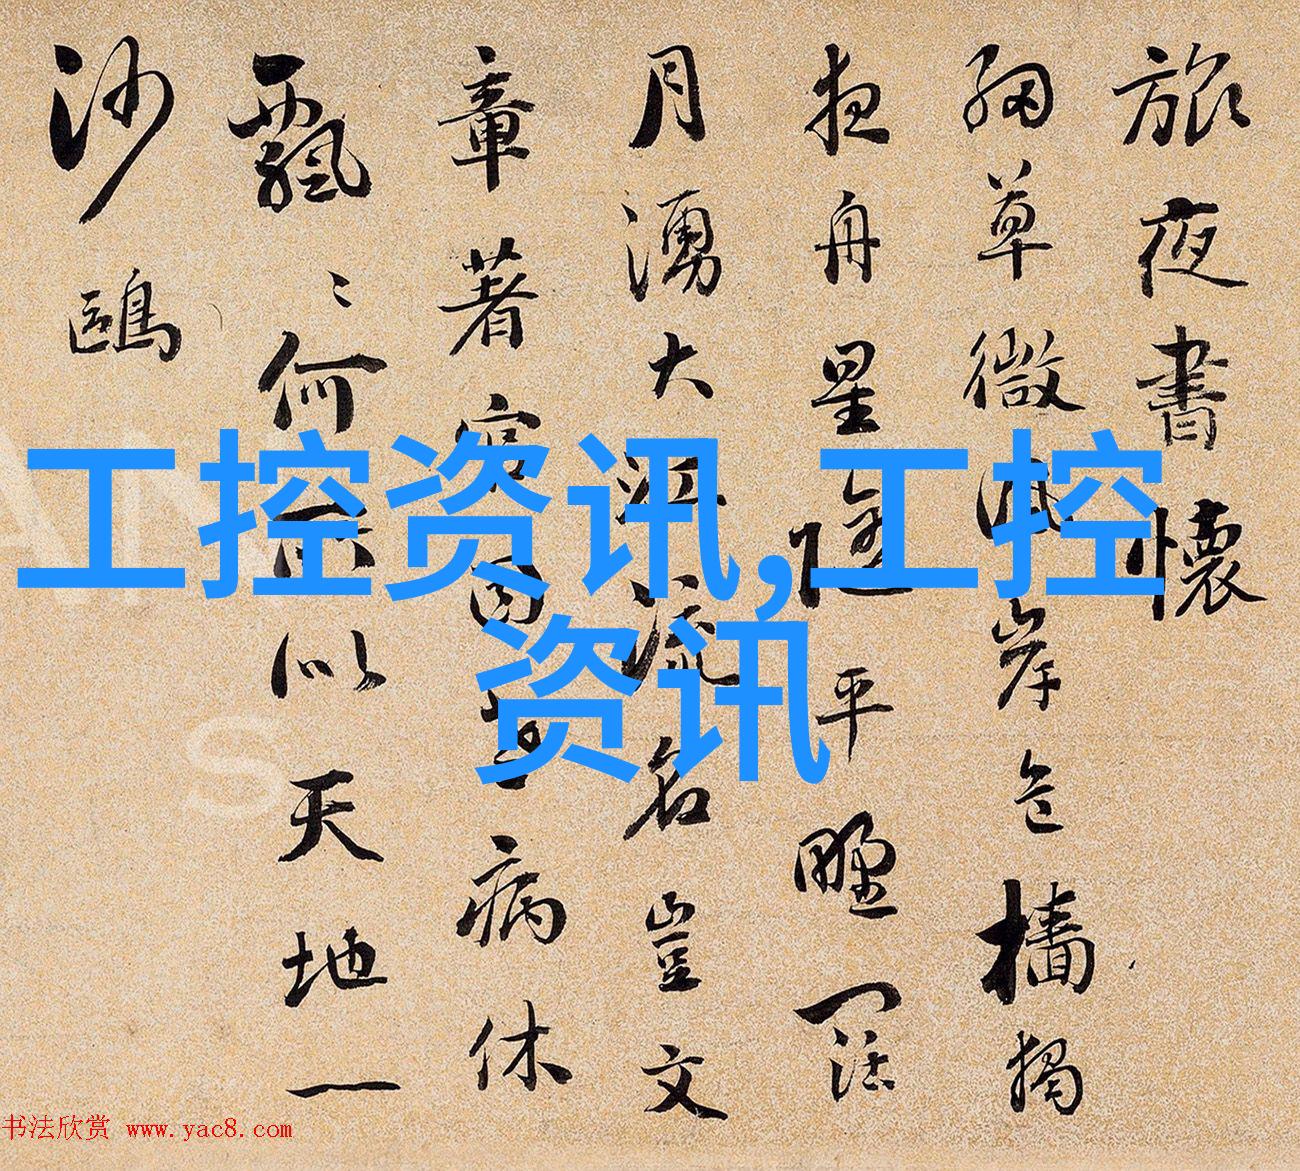 旅夜書懷
細草微風岸危檣獨
夜舟星隨平野闊
月湧大江流名豈文
章著官因老病休
飄〻何所似天地一
沙鷗
工控资讯,工控
资讯
书法欣赏 www.yac8.com